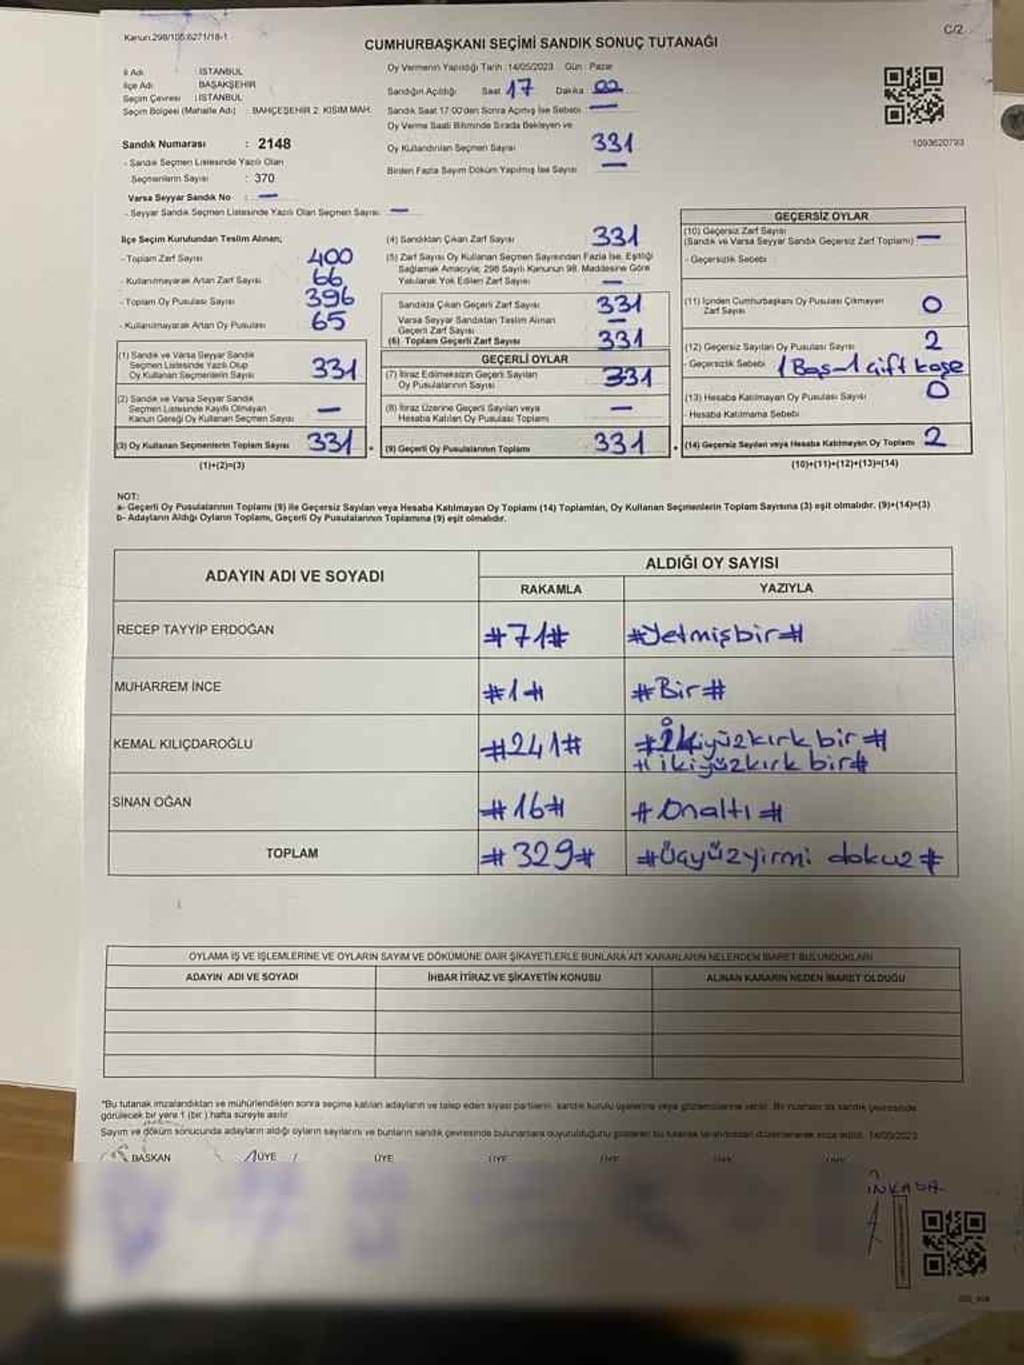 Kanun:298/105:6271/18-1
C/2
CUMHURBAŞKANI SEÇİMİ SANDIK SONUÇ TUTANAĞI
İl Adı : İSTANBUL
İlçe Adı : BAŞAKŞEHİR
Seçim Çevresi : İSTANBUL
Seçim Bölgesi (Mahalle Adı) : BAHÇEŞEHİR 2. KISIM MAH.
Sandık Numarası : 2148
- Sandık Seçmen Listesinde Yazılı Olan
Seçmenlerin Sayısı : 370
Varsa Seyyar Sandık No : —
- Seyyar Sandık Seçmen Listesinde Yazılı Olan Seçmen Sayısı: —
Oy Vermenin Yapıldığı Tarih :14/05/2023 Gün : Pazar
Sandığın Açıldığı Saat 17 Dakika : 00
Sandık Saat 17:00'den Sonra Açılmış İse Sebebi : —
Oy Verme Saati Bitiminde Sırada Bekleyen ve
Oy Kullandırılan Seçmen Sayısı 331
Birden Fazla Sayım Döküm Yapılmış İse Sayısı —
1093620793
İlçe Seçim Kurulundan Teslim Alınan;
- Toplam Zarf Sayısı 400
- Kullanılmayarak Artan Zarf Sayısı 66
- Toplam Oy Pusulası Sayısı 396
- Kullanılmayarak Artan Oy Pusulası 65
(1) Sandık ve Varsa Seyyar Sandık
Seçmen Listesinde Yazılı Olup
Oy Kullanan Seçmenlerin Sayısı 331
(2) Sandık ve Varsa Seyyar Sandık
Seçmen Listesinde Kayıtlı Olmayan
Kanun Gereği Oy Kullanan Seçmen Sayısı —
(3) Oy Kullanan Seçmenlerin Toplam Sayısı 331
(1)+(2)=(3)
(4) Sandıktan Çıkan Zarf Sayısı 331
(5) Zarf Sayısı Oy Kullanan Seçmen Sayısından Fazla İse, Eşitliği
Sağlamak Amacıyla, 298 Sayılı Kanunun 98. Maddesine Göre
Yakılarak Yok Edilen Zarf Sayısı —
Sandıkta Çıkan Geçerli Zarf Sayısı 331
Varsa Seyyar Sandıktan Teslim Alınan
Geçerli Zarf Sayısı —
(6) Toplam Geçerli Zarf Sayısı 331
GEÇERLİ OYLAR
(7) İtiraz Edilmeksizin Geçerli Sayılan
Oy Pusulalarının Sayısı 331
(8) İtiraz Üzerine Geçerli Sayılan veya
Hesaba Katılan Oy Pusulası Toplamı —
(9) Geçerli Oy Pusulalarının Toplamı 331
GEÇERSİZ OYLAR
(10) Geçersiz Zarf Sayısı
(Sandık ve Varsa Seyyar Sandık Geçersiz Zarf Toplamı) —
- Geçersizlik Sebebi
(11) İçinden Cumhurbaşkanı Oy Pusulası Çıkmayan
Zarf Sayısı 0
(12) Geçersiz Sayılan Oy Pusulası Sayısı 2
- Geçersizlik Sebebi 1 Boş-1 çift kaşe
(13) Hesaba Katılmayan Oy Pusulası Sayısı 0
- Hesaba Katılmama Sebebi
(14) Geçersiz Sayılan veya Hesaba Katılmayan Oy Toplamı 2
(10)+(11)+(12)+(13)=(14)
NOT:
a- Geçerli Oy Pusulalarının Toplamı (9) ile Geçersiz Sayılan veya Hesaba Katılmayan Oy Toplamı (14) Toplamları, Oy Kullanan Seçmenlerin Toplam Sayısına (3) eşit olmalıdır. (9)+(14)=(3)
b- Adayların Aldığı Oyların Toplamı, Geçerli Oy Pusulalarının Toplamına (9) eşit olmalıdır.
ADAYIN ADI VE SOYADI
ALDIĞI OY SAYISI
RAKAMLA YAZIYLA
RECEP TAYYİP ERDOĞAN #71# #Yetmişbir#
MUHARREM İNCE #1# #Bir#
KEMAL KILIÇDAROĞLU #241# #İkiyüzkırk bir#
#ikiyüzkırk bir#
SİNAN OĞAN #16# #Onaltı#
TOPLAM #329# #Üçyüzyirmi dokuz#
OYLAMA İŞ VE İŞLEMLERİNE VE OYLARIN SAYIM VE DÖKÜMÜNE DAİR ŞİKAYETLERLE BUNLARA AİT KARARLARIN NELERDEN İBARET BULUNDUKLARI
ADAYIN ADI VE SOYADI İHBAR İTİRAZ VE ŞİKAYETİN KONUSU ALINAN KARARIN NEDEN İBARET OLDUĞU
*Bu tutanak imzalandıktan ve mühürlendikten sonra seçime katılan adayların ve talep eden siyasi partilerin, sandık kurulu üyelerine veya gözlemcilerine verilir. Bir nüshası da sandık çevresinde
görülecek bir yere 1 (bir) hafta süreyle asılır.
Sayım ve döküm sonucunda adayların aldığı oyların sayılarını ve bunların sandık çevresinde bulunanlara duyurulduğunu gösteren bu tutanak tarafımızdan düzenlenerek imza edildi. 14/05/2023
BAŞKAN ÜYE ÜYE ÜYE ÜYE